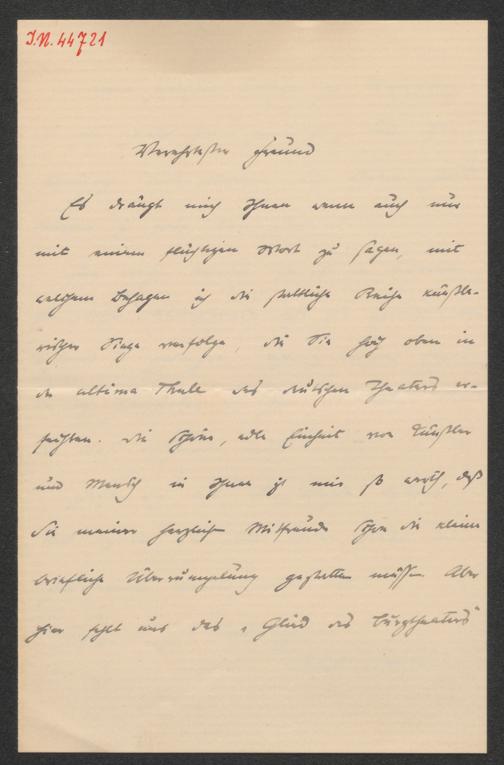 I.N. 44721
Verehrtester Freund
Es drängt mich Ihnen wenn auch nur
mit einem flüchtigen Wort zu sagen, mit
welchem Behagen ich die stattliche Reihe künstle-
rischer Siege verfolge, die Sie hoch oben in
der ultima Thule des deutschen Theaters er-
fechten. Die schöne, edle Einheit von Künstler
und Mensch in Ihnen ist mir so werth, daß
Sie meiner herzlichen Mitfreude schon die kleine
briefliche Überrumpelung gestatten müssen. Aber
hier fehlt uns das „Glück des Burgtheaters"